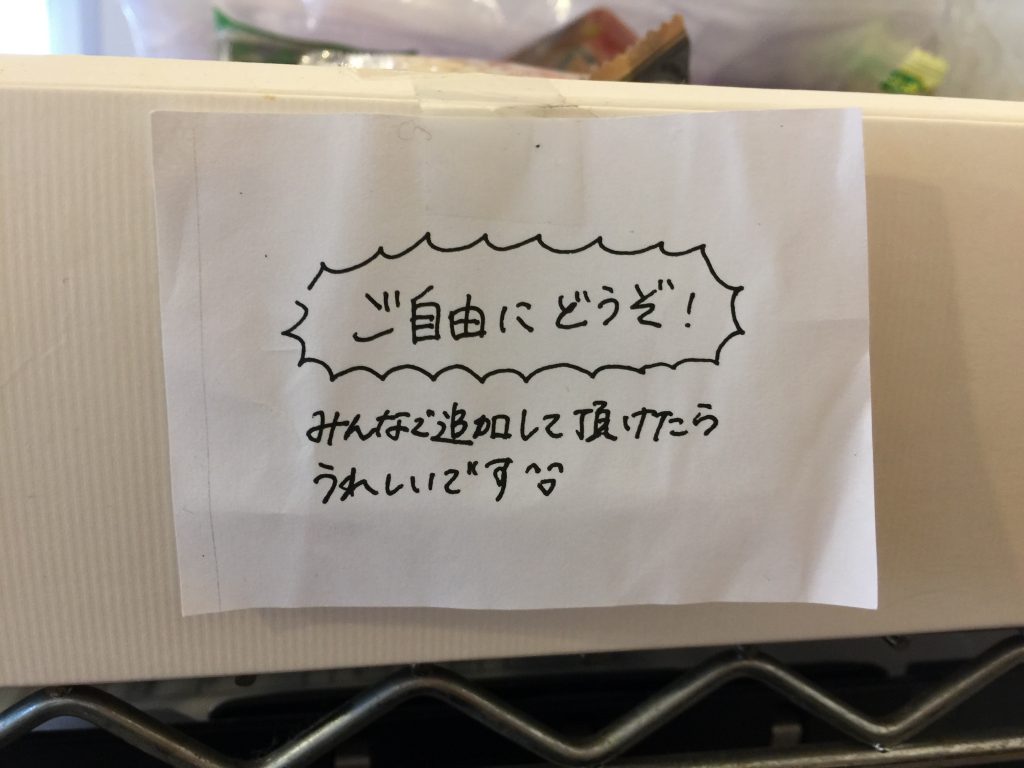 ご自由にどうぞ!
みんなで追加して頂けたら
うれしいです^^